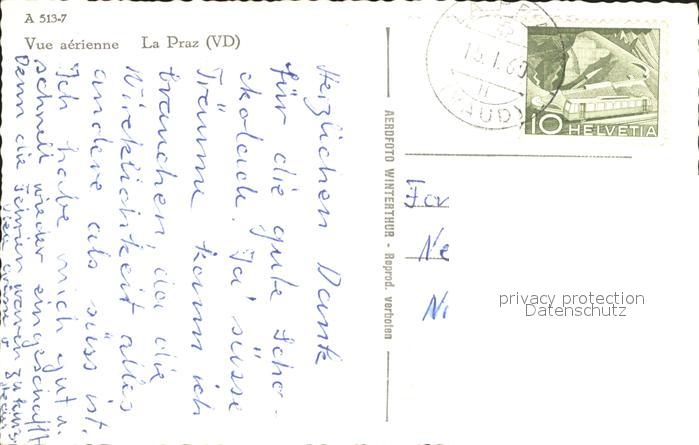 A 513-7
Vue aérienne La Praz (VD)
Herzlichen Dank
für die gute Scho-
ckolade. Ja' süsse
Träume kann ich
brauchen, da die
Wirklichkeit alles
andere als süss ist.
Ich habe mich gut u.
schnell wieder eingeschafft
Denn die Ferien waren zu kurz.
AEROFOTO WINTERTHUR - Reprod. verboten
(VAUD)
10 HELVETIA
Ne
privacy protection
Datenschutz